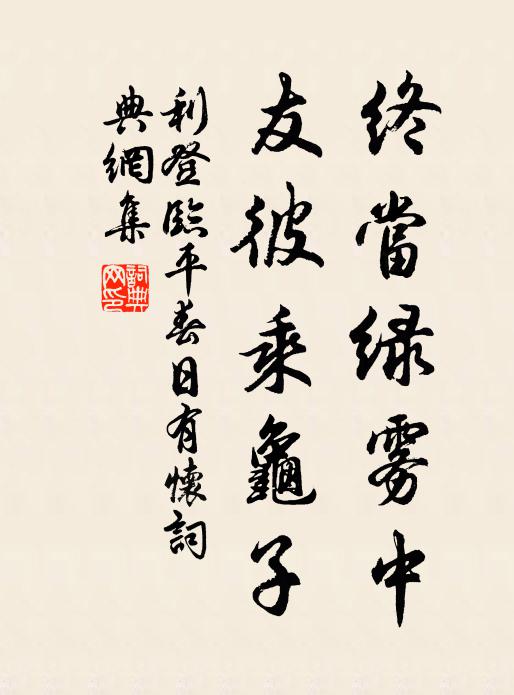 終當緑雾中
友彼乘龜子
利登臨平春日有懷詞
典網集
詞典网印